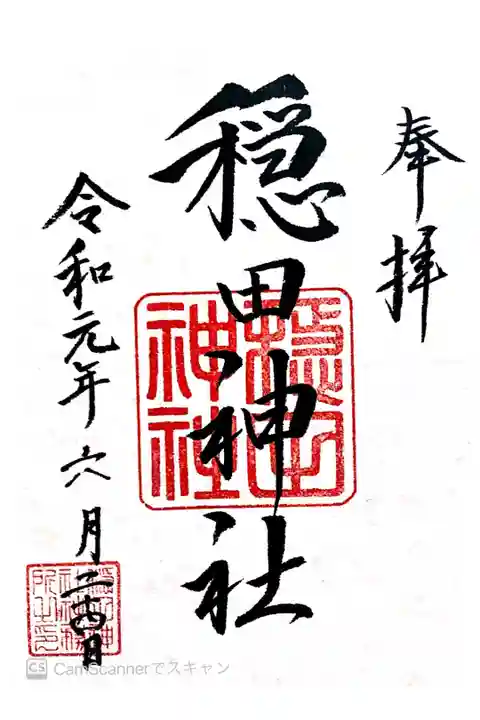 奉拝
穏田神社
穏田神社
令和元年六月二十四日
CS CamScannerでスキャン